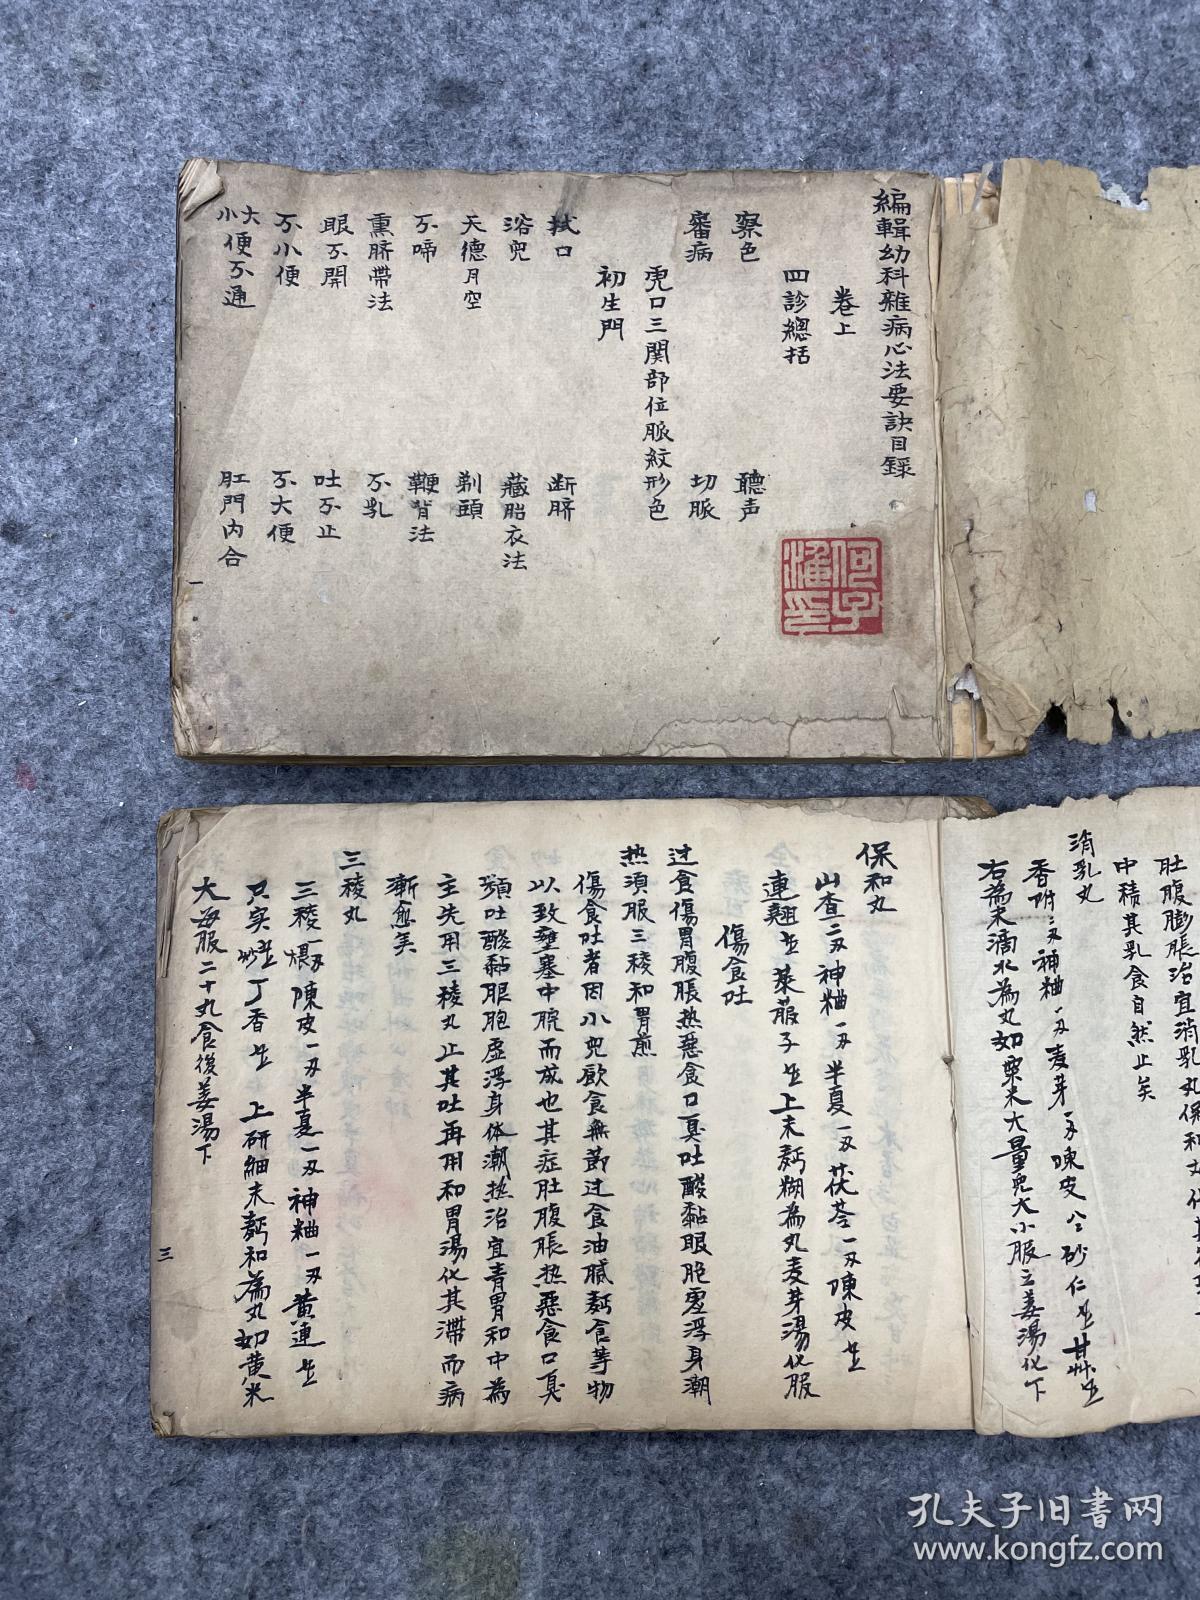 編輯幼科雜病心法要訣目錄
卷上
四診總括
察色 聽声
審病 切脈
虎口三関部位脈紋形色
初生門
拭口 断臍
浴児 藏胎衣法
天德月空 剃頭
不啼 鞭背法
熏臍帶法 不乳
眼不開 吐不止
不小便 不大便
大小便不通 肛門内合
一
何子
印
肚腹膨脹治宜消乳丸保和丸
中積其乳食自然止矣
消乳丸
香附 神粬 麦芽 陳皮 砂仁
右為末滴水為丸如粟米大量児大小服之姜湯化下
保和丸
山查二刄神粬一刄半夏一刄茯苓一刄陳皮
連翹 萊菔子 上末麪糊為丸麦芽湯化服
傷食吐
过食傷胃腹脹热惡食口臭吐酸黏眼胞虛浮身潮
热須服三稜和胃煎
傷食吐者因小児飲食無節过食油膩麪食等物
以致壅塞中脘而成也其症肚腹脹热惡食口臭
頻吐酸黏眼胞虛浮身体潮热治宜青胃和中為
主先用三稜丸止其吐再用和胃湯化其滯而病
漸愈矣
三稜丸
三稜一刄煨陳皮一刄半夏一刄神粬一刄黄連
只实 炒丁香 上研細末麪和為丸如黄米
大每服二十丸食後姜湯下
三
孔夫子旧书网
www.kongfz.com